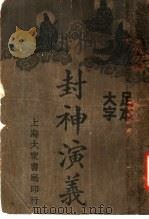 足本
大字
封神演義
上海大衆書局印行